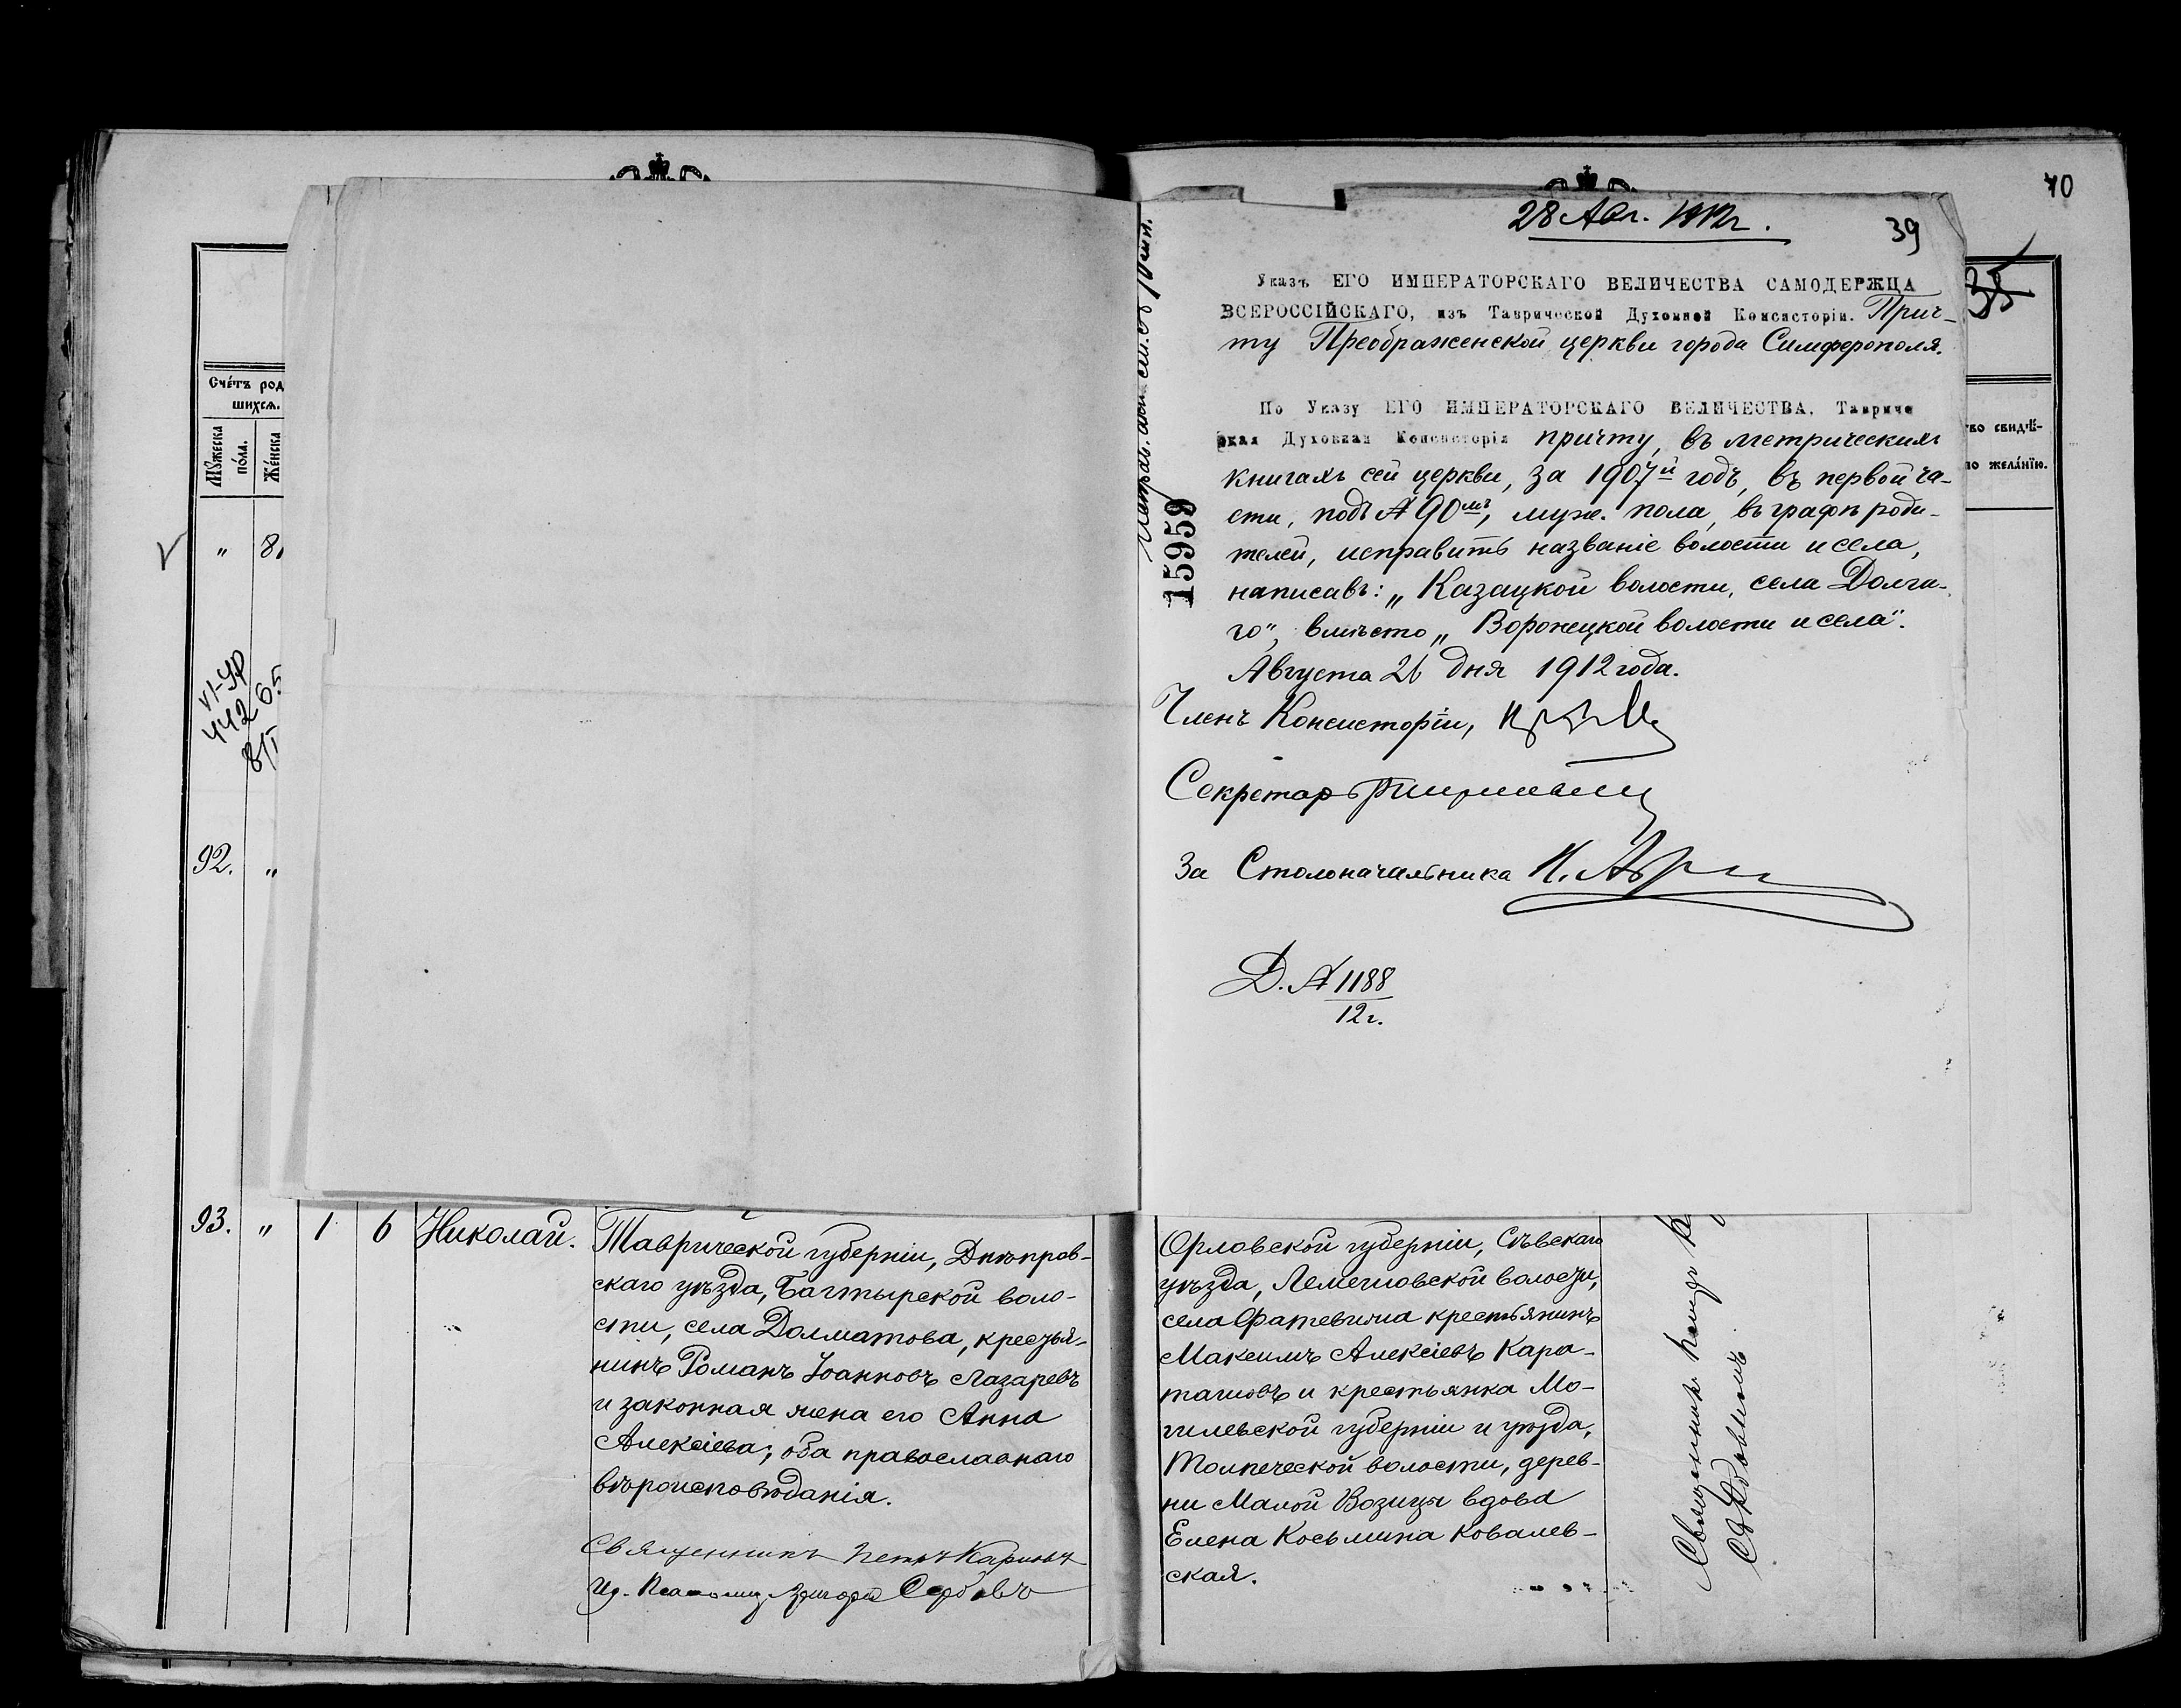 70
28 Авг. 1912г.
39
35
Указъ ЕГО ИМПЕРАТОРСКАГО ВЕЛИЧЕСТВА САМОДЕРЖЦА
ВСЕРОССІЙСКАГО, изъ Таврической Духовной Консисторіи. Прич-
ту Преображенской церкви города Симферополя.
По Указу ЕГО ИМПЕРАТОРСКАГО ВЕЛИЧЕСТВА, Тавриче
ская Духовная Консисторія причту, въ метрическихъ
книгахъ сей церкви, за 1907й годъ, въ первой ча-
сти, подъ № 90мъ, муж. пола, въ графѣ роди-
телей, исправить названіе волости и села,
написавъ: „Казацкой волости, села Долга-
го", вмѣсто „Воронецкой волости и села".
Августа 21 дня 1912 года.
Членъ Консисторіи,
Секретарь
За Столоначальника
Д. № 1188
12г.
15959
Счéтъ род
шихся.
Мужеска
пóла.
Жéнска
во свидѣ-
по желáнїю.
„ 81
VI-УР
442651
8/I
92. „
93. „ 1 6 Николай.
Таврической губерніи, Днѣпров-
скаго уѣзда, Багтырской воло-
сти, села Долматова, крестья-
нинъ Романъ Іоанновъ Лазаревъ
и законная жена его Анна
Алексіева; оба православнаго
вѣроисповѣданія.
Священникъ Петръ
Орловской губерніи, Сѣвскаго
уѣзда, Лемешовской волости,
села Фатевижа крестьянинъ
Максимъ Алексіевъ Кара-
ташовъ и крестьянка Мо-
гилевской губерніи и уѣзда,
Толпеческой волости, дерев-
ни Малой Возицы вдова
Елена Косьмина Ковалев-
ская.
Священникъ